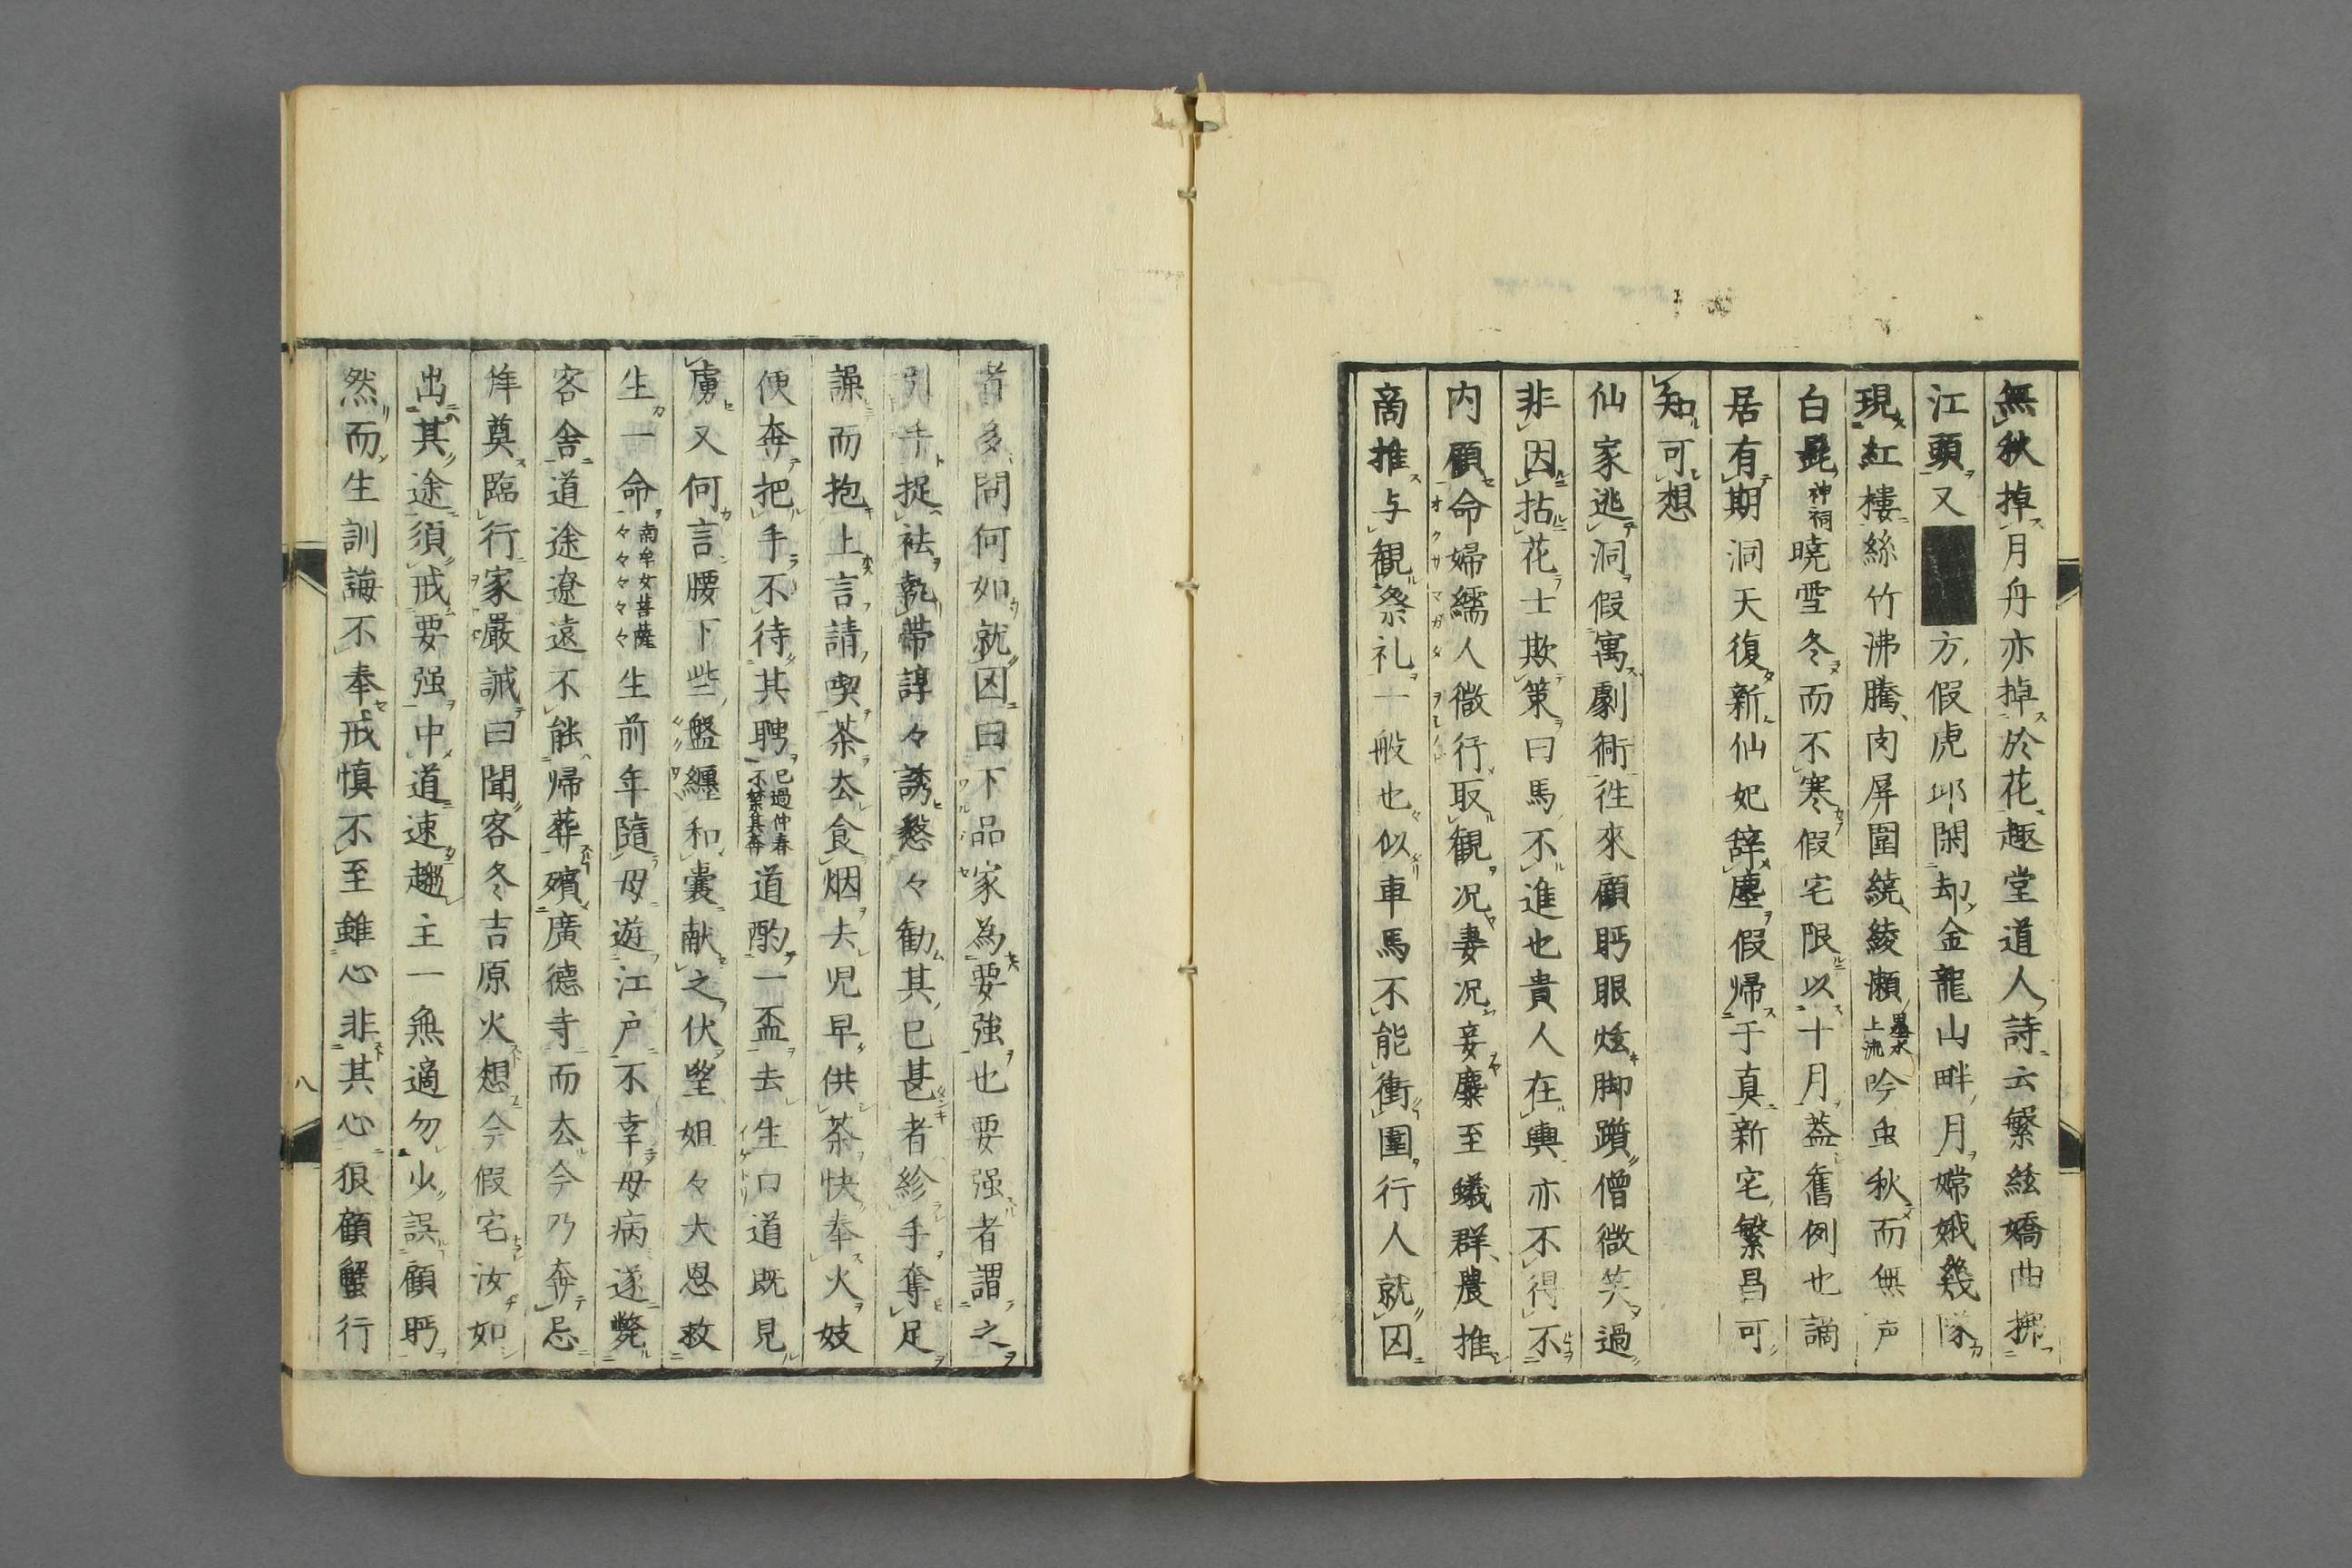 無秋掉月舟亦掉於花趣堂道人詩云繁絃嬌曲擁
江頭又方假虎邱閑却金龍山畔月嫦娥幾隊
現紅樓絲竹沸騰肉屏圍繞綾瀬墨水上流吟虫秋而無声
白髭神祠暁雪冬而不寒假宅限以十月葢舊例也謫
居有期洞天復新仙妃辞塵假帰于真新宅繁昌可
知可想
仙家逃洞假寓劇衕徃來顧眄眼炫脚躓僧微笑過
非因拈花士欺策曰馬不進也貴人在輿亦不得不
内顧命婦繻人微行取観况妻况妾麋至蟻群農推
商推与観祭礼一般也似車馬不能衝圍行人就囚
者多問何如就囚曰下品家為要強也要强者謂之
引手捉袪執帯諄々誘愁々勧其已甚者紾手奪足
譟而抱上言請喫茶厺食烟去児早供茶快奉火妓
便奔把手不待其聘已過仲春不禁其奔道酌一盃去生口道既見
虜又何言腰下些盤纏和嚢献之伏望姐々大恩救
生一命南牟女菩薩々々々々々生前年隨母遊江户不幸母病遂斃
客舎道途遼遠不能帰葬殯廣德寺而厺今乃奔忌
奠臨行家嚴誡曰聞客冬吉原火想今假宅汝如
出其途須戒要强中道速趣主一無適勿少誤顧眄
然而生訓誨不奉戒慎不至雖心非其心狠顧蟹行
八